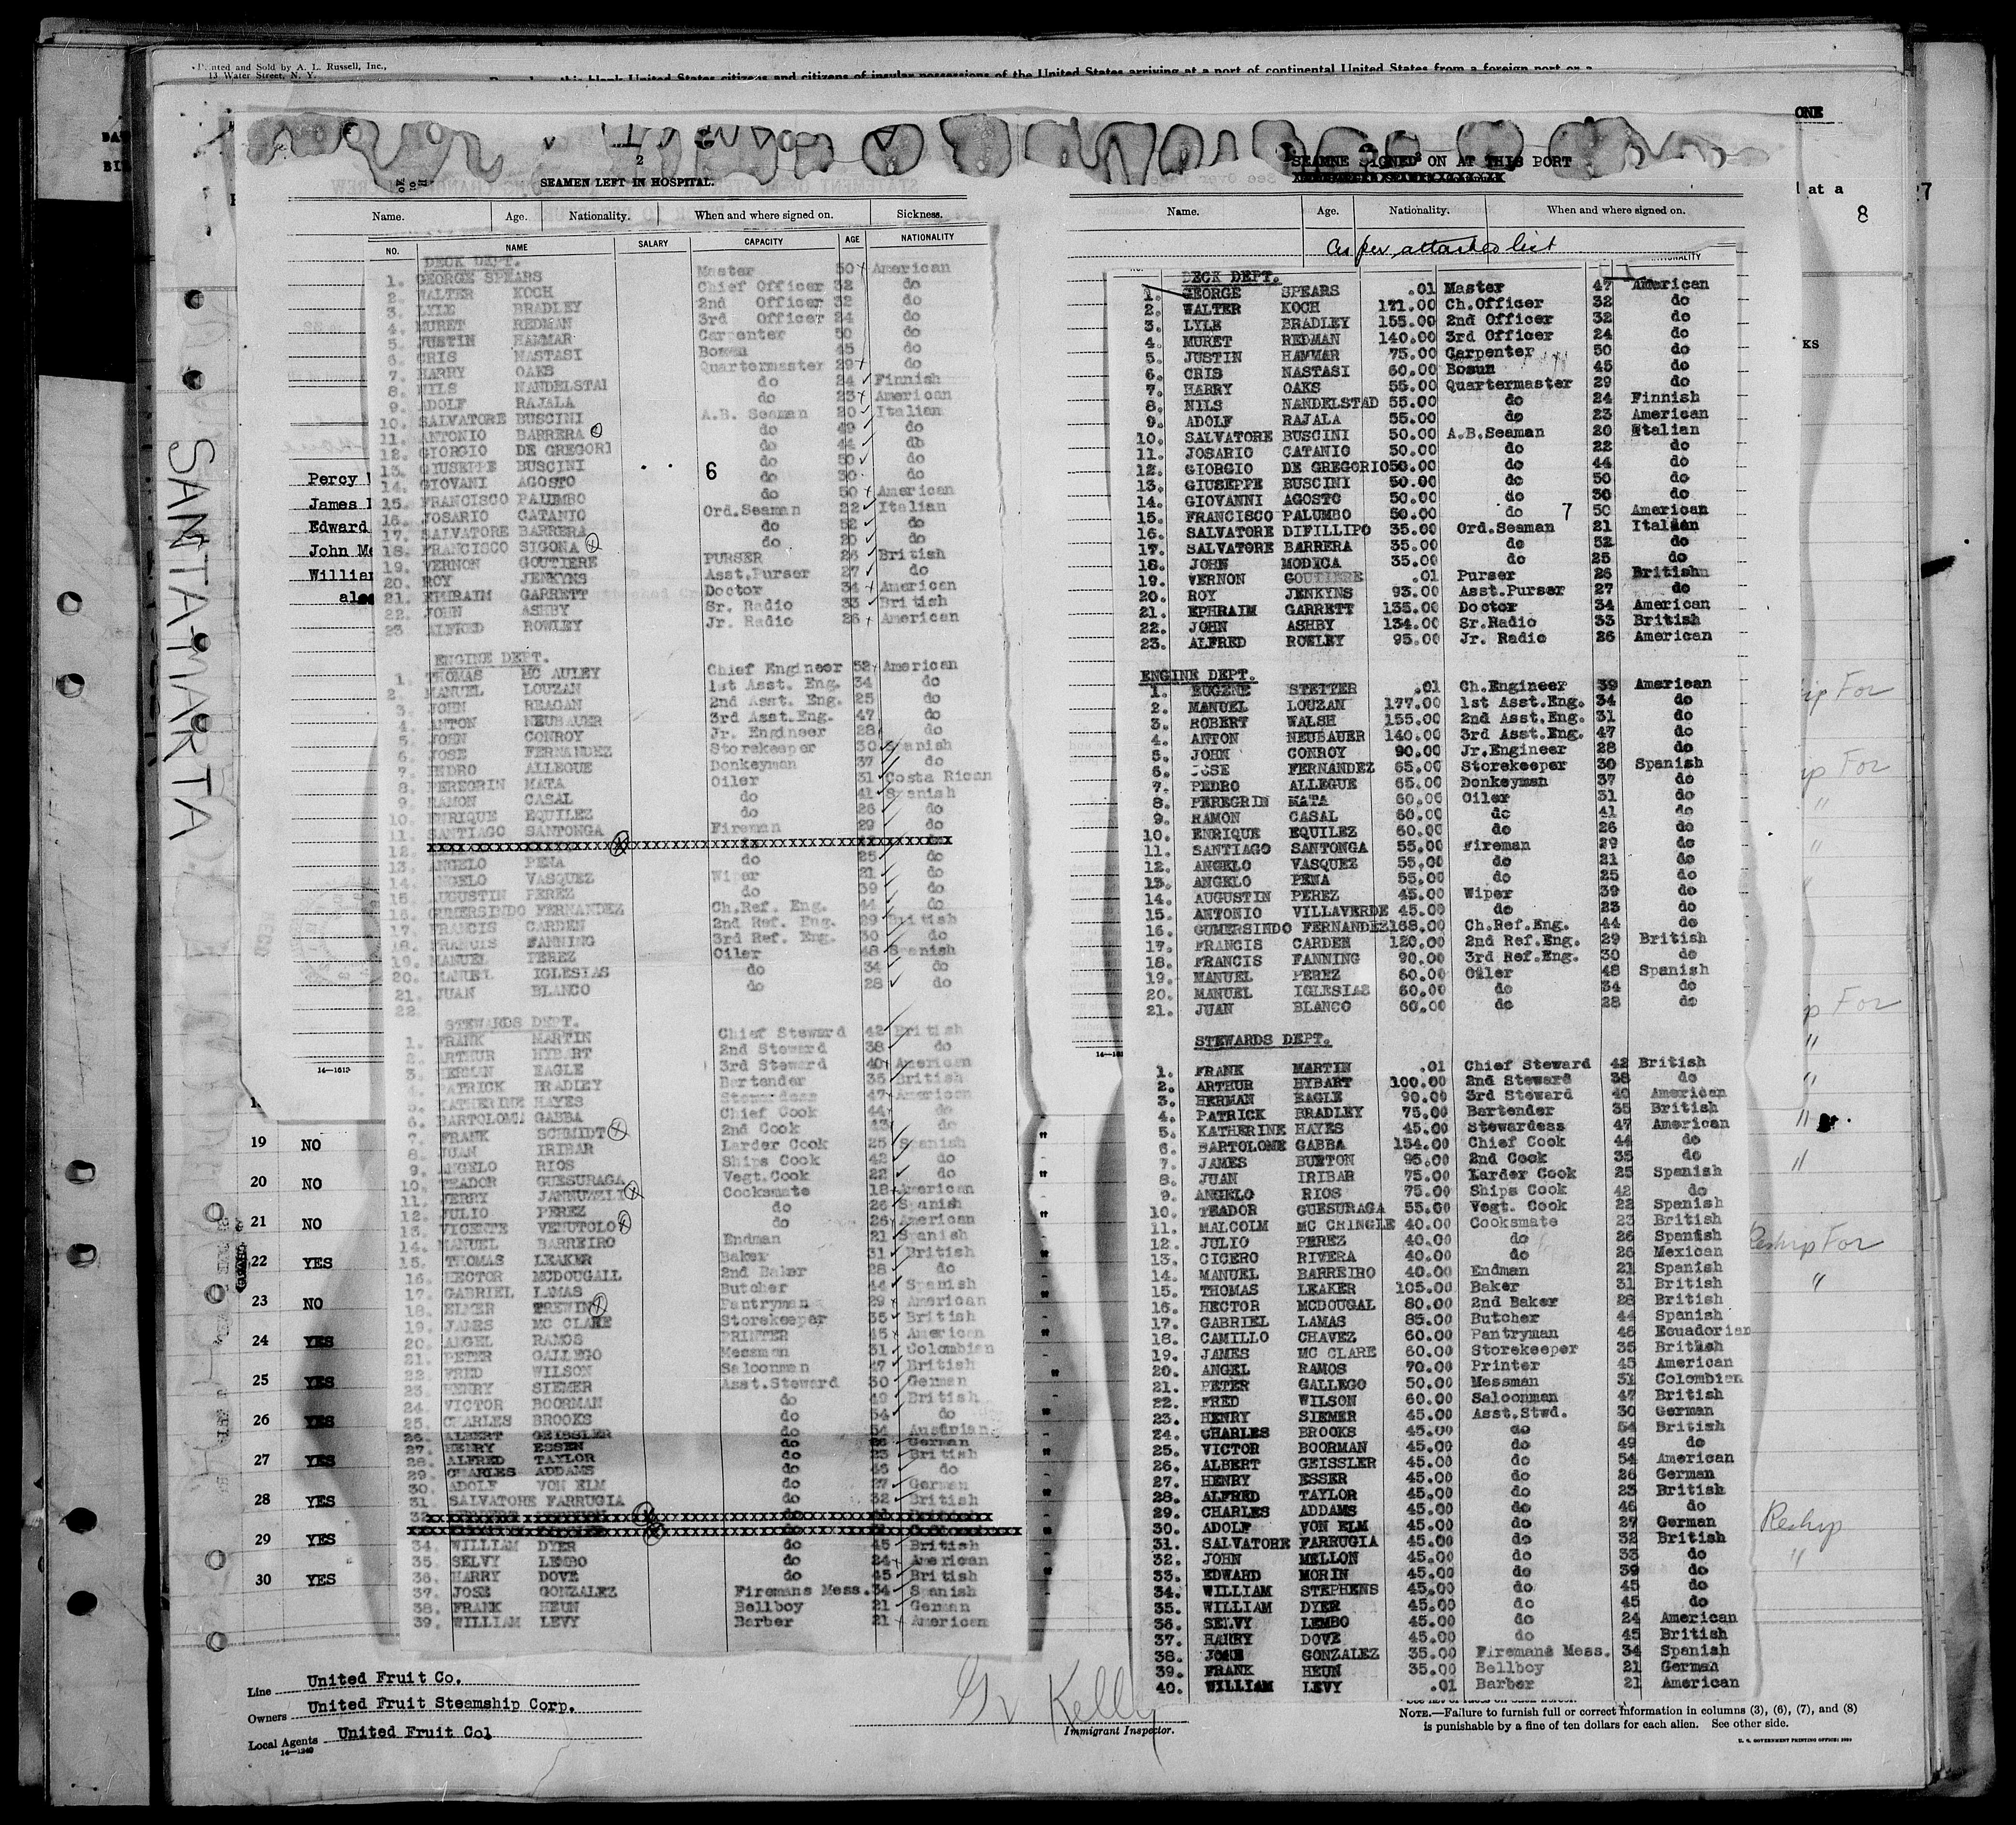 Printed and Sold by A. L. Russell, Inc.,
13 Water Street, N. Y.
this blank United States citizens and citizens of insular possessions of the United States arriving at a port of continental United States from a foreign port or a
ONE
SANTA MARTA
2
SEAMEN LEFT IN HOSPITAL.
Name. Age. Nationality. When and where signed on. Sickness.
NO. NAME SALARY CAPACITY AGE NATIONALITY
DECK DEPT.
1. GEORGE SPEARS Master 50 American
2. WALTER KOCH Chief Officer 32 do
3. LYLE BRADLEY 2nd Officer 32 do
4. MURET REDMAN 3rd Officer 24 do
5. JUSTIN HAMMAR Carpenter 50 do
6. CRIS NASTASI Bosun 45 do
7. HARRY OAKS Quartermaster 29 do
8. NILS NANDELSTAD do 24 Finnish
9. ADOLF RAJALA do 23 American
10. SALVATORE BUSCINI A.B. Seaman 20 Italian
11. ANTONIO BARRERA do 49 do
12. GIORGIO DE GREGORI do 44 do
13. GIUSEPPE BUSCINI do 50 do
14. GIOVANI AGOSTO do 30 do
15. FRANCISCO PALUMBO do 50 American
16. JOSARIO CATANIO Ord.Seaman 22 Italian
17. SALVATORE BARRERA do 52 do
18. FRANCISCO SIGONA do 20 do
19. VERNON GOUTIERE PURSER 26 British
20. ROY JENKYNS Asst.Purser 27 do
21. EPHRAIM GARRETT Doctor 34 American
22. JOHN ASHBY Sr. Radio 33 British
23. ALFRED ROWLEY Jr. Radio 26 American
ENGINE DEPT.
1. THOMAS MC AULEY Chief Engineer 52 American
2. MANUEL LOUZAN 1st Asst. Eng. 34 do
3. JOHN REAGAN 2nd Asst. Eng. 25 do
4. ANTON NEUBAUER 3rd Asst.Eng. 47 do
5. JOHN CONROY Jr. Engineer 28 do
6. JOSE FERNANDEZ Storekeeper 30 Spanish
7. PEDRO ALLEGUE Donkeyman 37 do
8. PEREGRIN MATA Oiler 31 Costa Rican
9. RAMON CASAL do 41 Spanish
10. ENRIQUE EQUILEZ do 26 do
11. SANTIAGO SANTONGA Fireman 29 do
12.
13. ANGELO PENA do 25 do
14. ANGELO VASQUEZ Wiper 21 do
15. AUGUSTIN PEREZ do 39 do
16. GUMERSINDO FERNANDEZ Ch.Ref. Eng. 44 do
17. FRANCIS CARDEN 2nd Ref. Eng. 29 British
18. FRANCIS FANNING 3rd Ref. Eng. 30 do
19. MANUEL PEREZ Oiler 48 Spanish
20. MANUEL IGLESIAS do 34 do
21. JUAN BLANCO do 28 do
22.
STEWARDS DEPT.
1. FRANK MARTIN Chief Steward 42 British
2. ARTHUR HYBART 2nd Steward 38 do
3. HERMAN EAGLE 3rd Steward 40 American
4. PATRICK BRADLEY Bartender 35 British
5. KATHERINE HAYES Stewardess 47 American
6. BARTOLOMI GABBA Chief Cook 44 do
7. FRANK SCHMIDT 2nd Cook 43 do
8. JUAN IRIBAR Larder Cook 25 Spanish
9. ANGELO RIOS Ships Cook 42 do
10. TEADOR GUESURAGA Vegt.Cook 22 do
11. FERRY JANNUZELI Cooksmate 18 American
12. JULIO PEREZ do 26 Spanish
13. VICENTE VENUTOLO do 26 American
14. MANUEL BARREIRO Endman 21 Spanish
15. THOMAS LEAKER Baker 31 British
16. HECTOR MCDOUGALL 2nd Baker 28 do
17. GABRIEL LAMAS Butcher 44 Spanish
18. ELMER TREWIN Pantryman 29 American
19. JAMES MC CLARE Storekeeper 35 British
20. ANGEL RAMOS PRINTER 45 American
21. PETER GALLEGO Messman 31 Colombian
22. FRED WILSON Saloonman 47 British
23. HENRY SIEMER Asst.Steward 30 German
24. VICTOR BOORMAN do 49 British
25. CHARLES BROOKS do 54 do
26. ALBERT GEISSLER do 54 Austrian
27. HENRY ESSEN do 26 German
28. ALFRED TAYLOR do 23 British
29. CHARLES ADDAMS do 46 do
30. ADOLF VON ELM do 27 German
31. SALVATORE FARRUGIA do 32 British
32.
34. WILLIAM DYER do 45 British
35. SELVY LEMBO do 24 American
36. HARRY DOVE do 45 British
37. JOSE GONZALEZ Firemans Mess. 34 Spanish
38. FRANK HEUN Bellboy 21 German
39. WILLIAM LEVY Barber 21 American
6
Percy
James
Edward
John
William
14—1613
19 NO
20 NO
21 NO
22 YES
23 NO
24 YES
25 YES
26 YES
27 YES
28 YES
29 YES
30 YES
SEAMNE SIGNED ON AT THIS PORT
Name. Age. Nationality. When and where signed on.
as per attached list
DECK DEPT.
1. GEORGE SPEARS .01 Master 47 American
2. WALTER KOCH 171.00 Ch.Officer 32 do
3. LYLE BRADLEY 155.00 2nd Officer 32 do
4. MURET REDMAN 140.00 3rd Officer 24 do
5. JUSTIN HAMMAR 75.00 Carpenter 50 do
6. CRIS NASTASI 60.00 Bosun 45 do
7. HARRY OAKS 55.00 Quartermaster 29 do
8. NILS NANDELSTAD 55.00 do 24 Finnish
9. ADOLF RAJALA 55.00 do 23 American
10. SALVATORE BUSCINI 50.00 A.B.Seaman 20 Italian
11. JOSARIO CATANIO 50.00 do 22 do
12. GIORGIO DE GREGORIO 50.00 do 44 do
13. GIUSEPPE BUSCINI 50.00 do 50 do
14. GIOVANNI AGOSTO 50.00 do 30 do
15. FRANCISCO PALUMBO 50.00 do 7 50 American
16. SALVATORE DIFILLIPO 35.00 Ord.Seaman 21 Italian
17. SALVATORE BARRERA 35.00 do 52 do
18. JOHN MODICA 35.00 do 25 do
19. VERNON GOUTIERE .01 Purser 26 British
20. ROY JENKYNS 93.00 Asst.Purser 27 do
21. EPHRAIM GARRETT 135.00 Doctor 34 American
22. JOHN ASHBY 134.00 Sr.Radio 33 British
23. ALFRED ROWLEY 95.00 Jr. Radio 26 American
ENGINE DEPT.
1. EUGENE STETTER .01 Ch.Engineer 39 American
2. MANUEL LOUZAN 177.00 1st Asst.Eng. 34 do
3. ROBERT WALSH 155.00 2nd Asst.Eng. 31 do
4. ANTON NEUBAUER 140.00 3rd Asst.Eng. 47 do
5. JOHN CONROY 90.00 Jr.Engineer 28 do
6. JOSE FERNANDEZ 65.00 Storekeeper 30 Spanish
7. PEDRO ALLEGUE 65.00 Donkeyman 37 do
8. PEREGRIN MATA 60.00 Oiler 31 do
9. RAMON CASAL 60.00 do 41 do
10. ENRIQUE EQUILEZ 60.00 do 26 do
11. SANTIAGO SANTONGA 55.00 Fireman 29 do
12. ANGELO VASQUEZ 55.00 do 21 do
13. ANGELO PENA 55.00 do 25 do
14. AUGUSTIN PEREZ 45.00 Wiper 39 do
15. ANTONIO VILLAVERDE 45.00 do 23 do
16. GUMERSINDO FERNANDEZ 168.00 Ch.Ref.Eng. 44 do
17. FRANCIS CARDEN 120.00 2nd Ref.Eng. 29 British
18. FRANCIS FANNING 90.00 3rd Ref.Eng. 30 do
19. MANUEL PEREZ 60.00 Oiler 48 Spanish
20. MANUEL IGLESIAS 60.00 do 34 do
21. JUAN BLANCO 60.00 do 28 do
STEWARDS DEPT.
1. FRANK MARTIN .01 Chief Steward 42 British
2. ARTHUR HYBART 100.00 2nd Steward 38 do
3. HERMAN EAGLE 90.00 3rd Steward 40 American
4. PATRICK BRADLEY 75.00 Bartender 35 British
5. KATHERINE HAYES 45.00 Stewardess 47 American
6. BARTOLOME GABBA 154.00 Chief Cook 44 do
7. JAMES BURTON 95.00 2nd Cook 35 do
8. JUAN IRIBAR 75.00 Larder Cook 25 Spanish
9. ANGELO RIOS 75.00 Ships Cook 42 do
10. TEADOR GUESURAGA 55.00 Vegt. Cook 22 Spanish
11. MALCOLM MC CRINGLE 40.00 Cooksmate 23 British
12. JULIO PEREZ 40.00 do 26 Spanish
13. CICERO RIVERA 40.00 do 26 Mexican
14. MANUEL BARREIRO 40.00 Endman 21 Spanish
15. THOMAS LEAKER 105.00 Baker 31 British
16. HECTOR MCDOUGAL 80.00 2nd Baker 28 British
17. GABRIEL LAMAS 85.00 Butcher 44 Spanish
18. CAMILLO CHAVEZ 60.00 Pantryman 46 Ecuadorian
19. JAMES MC CLARE 60.00 Storekeeper 35 British
20. ANGEL RAMOS 70.00 Printer 45 American
21. PETER GALLEGO 50.00 Messman 31 Colombian
22. FRED WILSON 60.00 Saloonman 47 British
23. HENRY SIEMER 45.00 Asst.Stwd. 30 German
24. CHARLES BROOKS 45.00 do 54 British
25. VICTOR BOORMAN 45.00 do 49 do
26. ALBERT GEISSLER 45.00 do 54 American
27. HENRY ESSER 45.00 do 26 German
28. ALFRED TAYLOR 45.00 do 23 British
29. CHARLES ADDAMS 45.00 do 46 do
30. ADOLF VON ELM 45.00 do 27 German
31. SALVATORE FARRUGIA 45.00 do 32 British
32. JOHN MELLON 45.00 do 33 do
33. EDWARD MORIN 45.00 do 39 do
34. WILLIAM STEPHENS 45.00 do 45 do
35. WILLIAM DYER 45.00 do 45 do
36. SELVY LEMBO 45.00 do 24 American
37. HARRY DOVE 45.00 do 45 British
38. JOSE GONZALEZ 35.00 Firemans Mess. 34 Spanish
39. FRANK HEUN 35.00 Bellboy 21 German
40. WILLIAM LEVY .01 Barber 21 American
at a
8
27
KS
ip For
ip For
p For
Reship For
Reship
Line United Fruit Co.
Owners United Fruit Steamship Corp.
Local Agents United Fruit Col
14—1240
Kelly
Immigrant Inspector.
NOTE.—Failure to furnish full or correct information in columns (3), (6), (7), and (8)
is punishable by a fine of ten dollars for each alien. See other side.
U. S. GOVERNMENT PRINTING OFFICE: